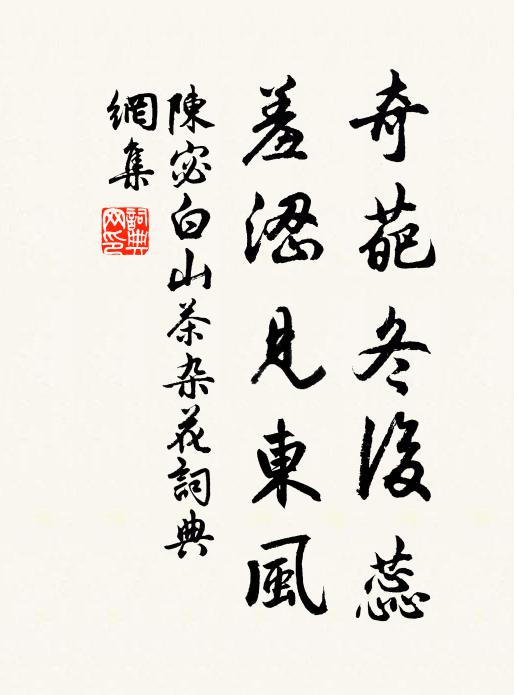 奇葩冬後蕊
羞澀見東風
陳宓白山茶杂花詞典
網集
詞典網印